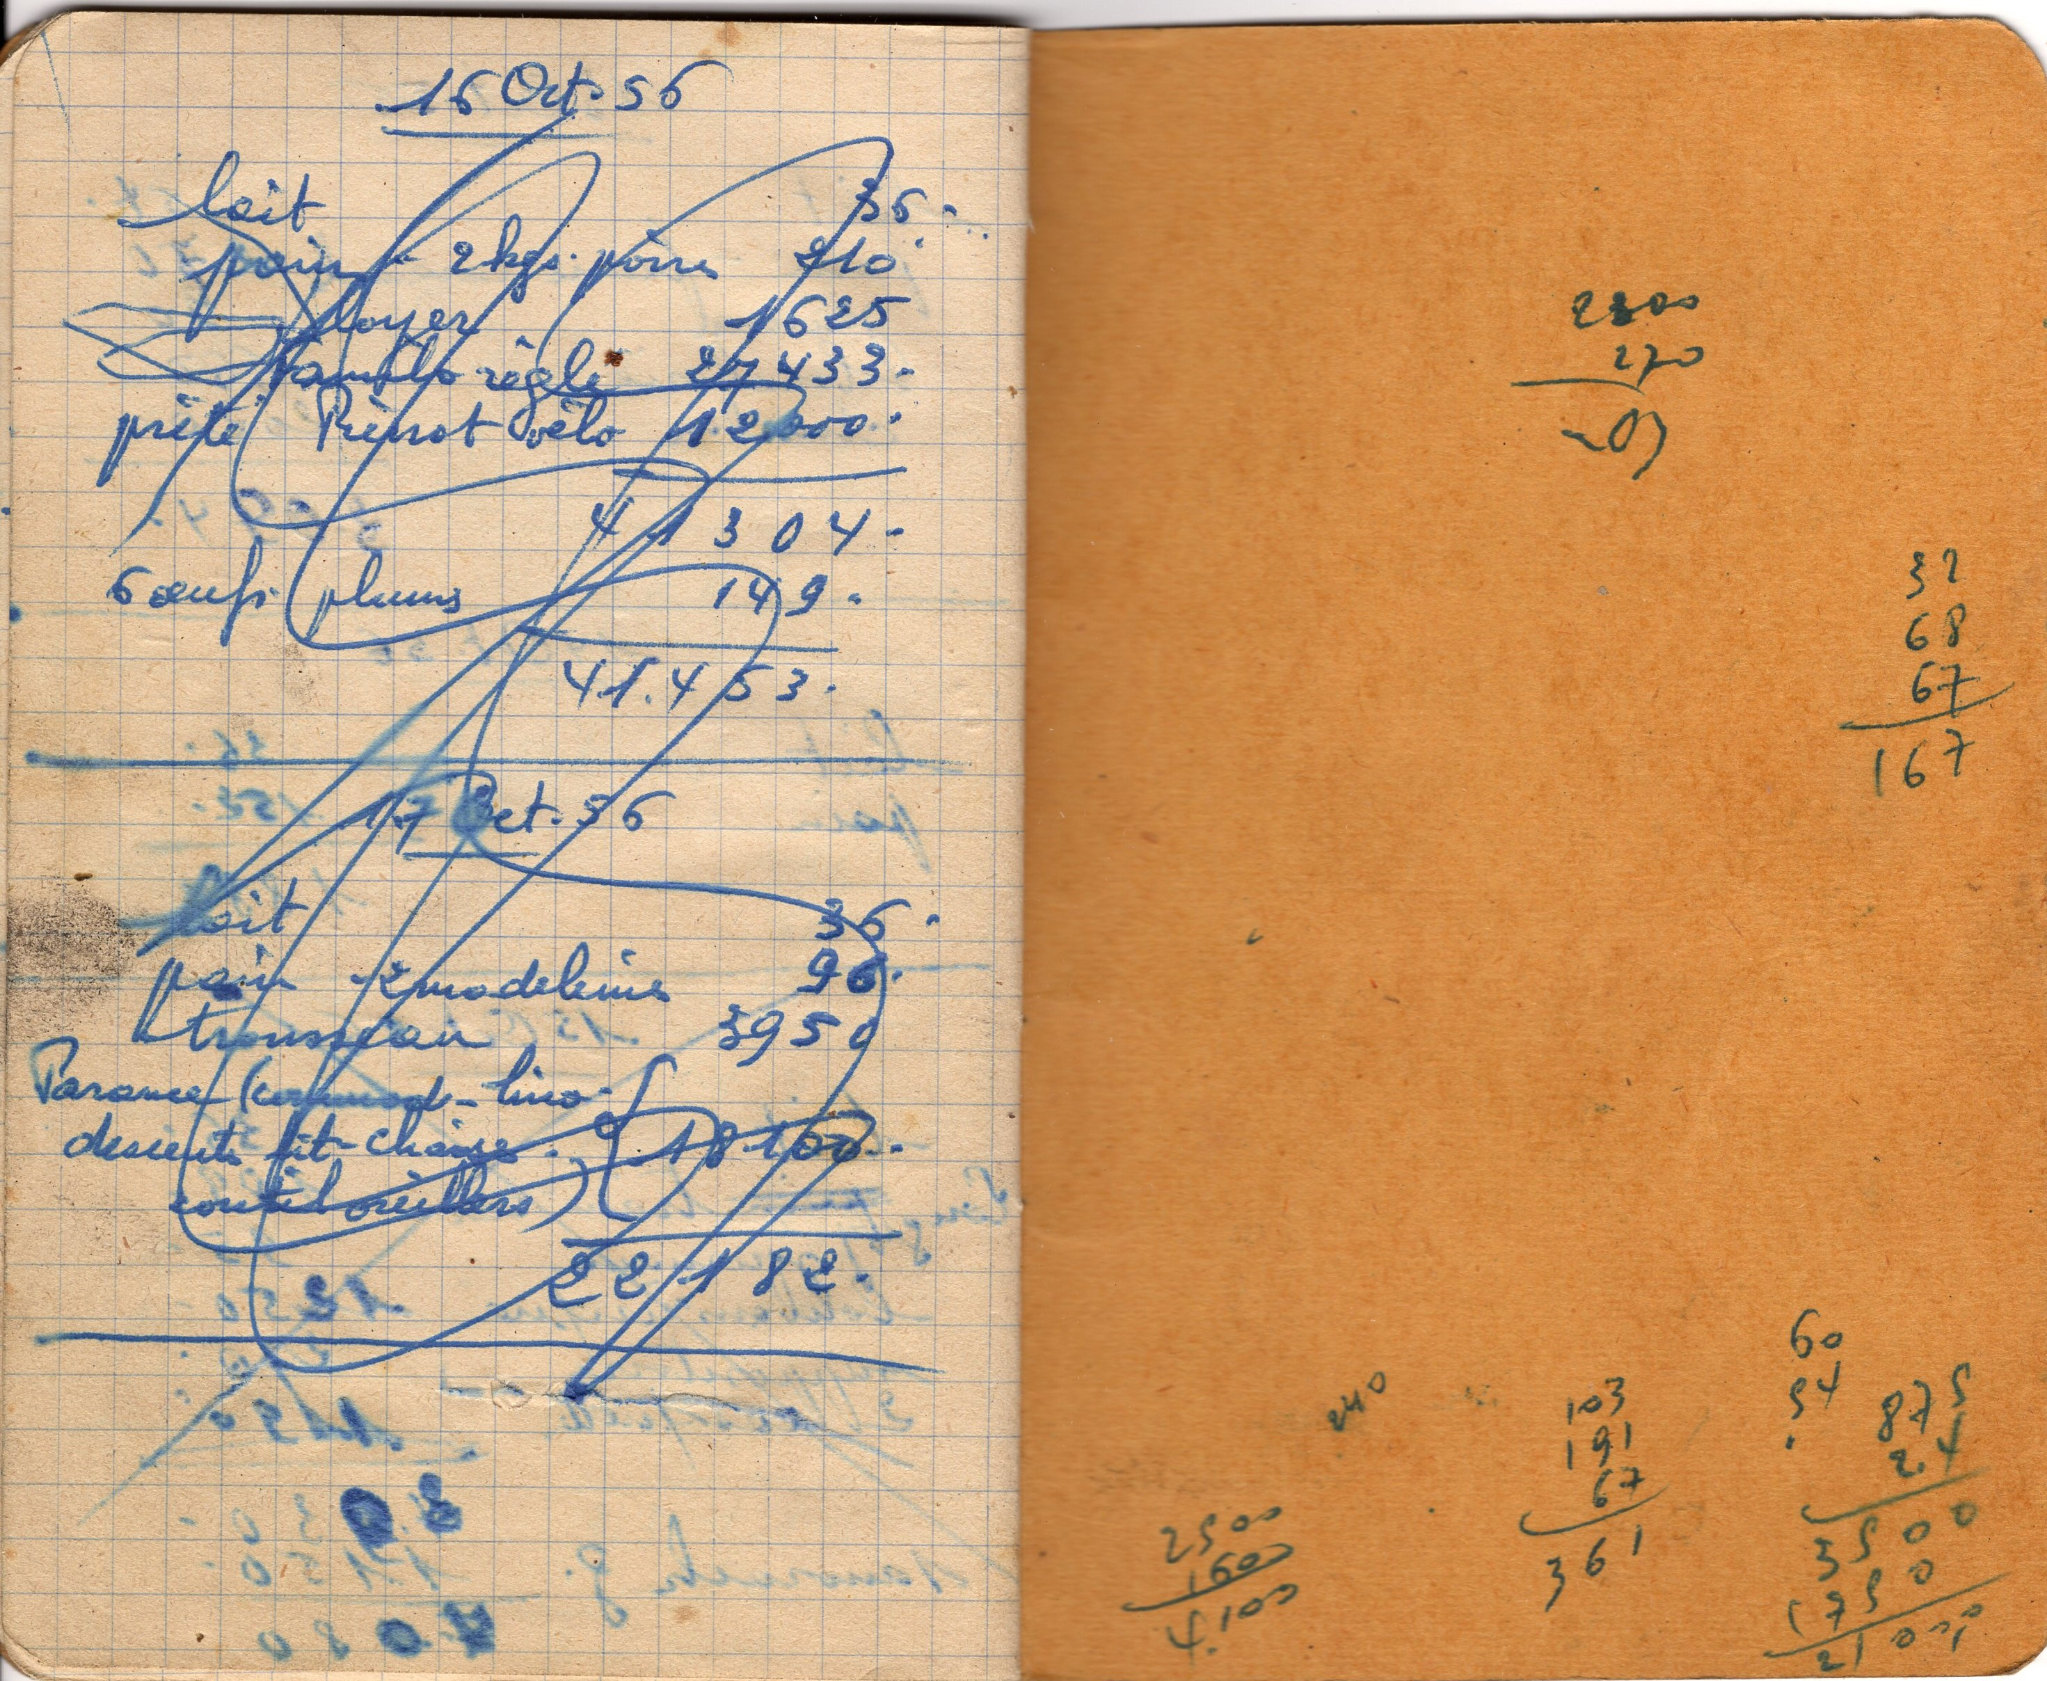 16 Oct. 56
lait 36.
pain - 2 kgs. poires 210
loyer 1625
réglé 27433.
prêté Pierrot vélo 12000.
41304.
6 oeufs plums 149.
41.453.
17 Oct. 56
lait 36.
pain - 2 madeleines 96.
trousseau 3950
Parance (commod - lino -
descente lit - chaise. 18100.
oreillers)
22182.
2300
270
32
68
67
167
60
54
240
103
191
67
361
875
2.4
3500
1750
21000
2500
1600
4100